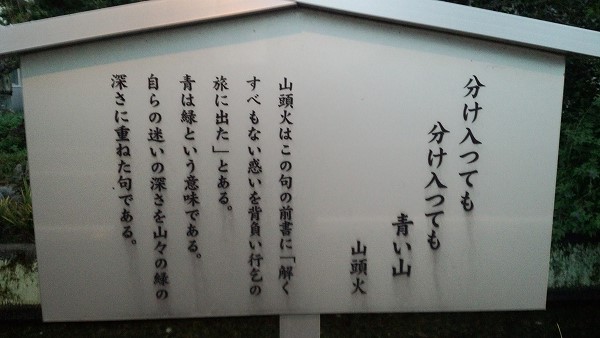 分け入つても
分け入つても
青い山
山頭火
山頭火はこの句の前書に「解く
すべもない惑いを背負い行乞の
旅に出た」とある。
青は緑という意味である。
自らの迷いの深さを山々の緑の
深さに重ねた句である。